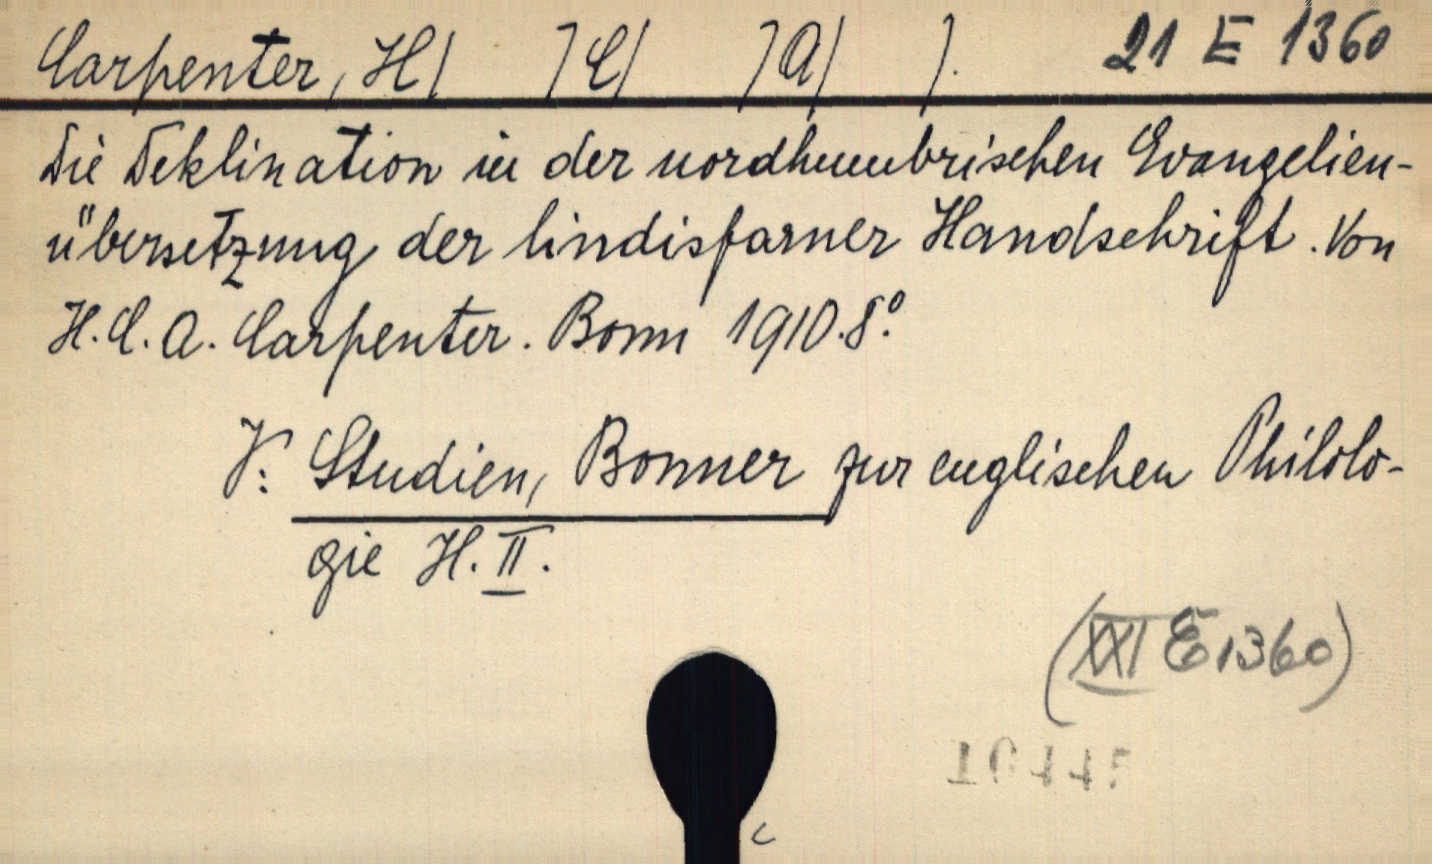 Carpenter, H/ /C/ /A/ /. 21 E 1360
Die Deklination in der nordhumbrischen Evangelien-
übersetzung der lindisfarner Handschrift. Von
H. C. A. Carpenter. Bonn 1910. 8°.
V: Studien, Bonner zur englischen Philolo-
gie H. II.
(XXI E 1360)
c